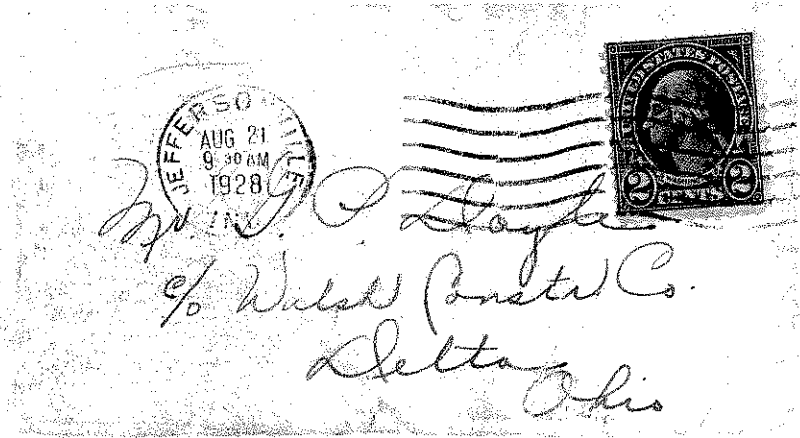 JEFFERSO VILLE
AUG 21
9 30 AM
1928
IND.
UNITED STATES POSTAGE
2 CENTS 2
Mr. G. P. Doyle
c/o Walsh Constr. Co.
Delta
Ohio